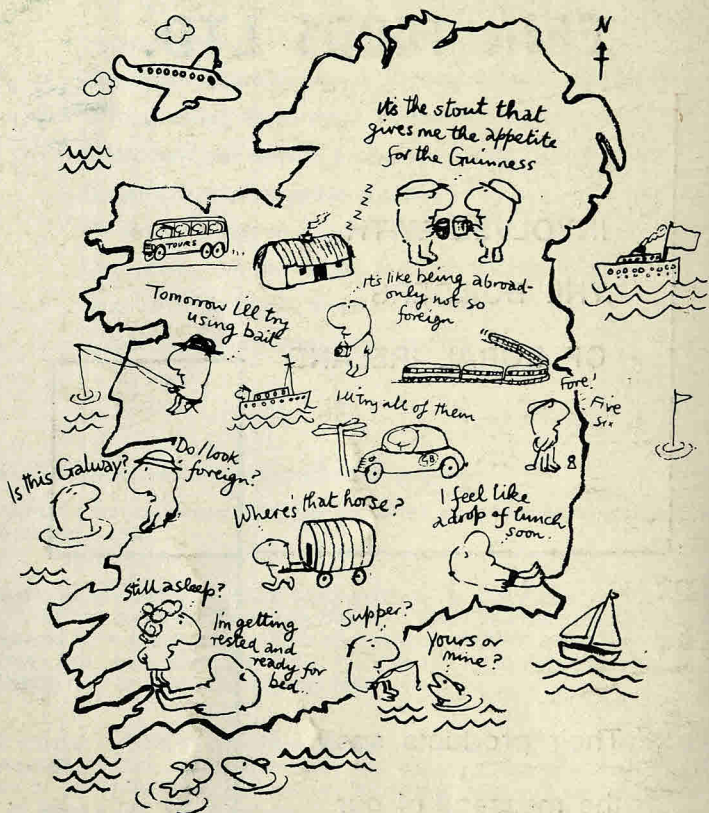 N
It's the stout that
gives me the appetite
for the Guinness
z
z
z
z
z
TOURS
It's like being abroad-
only not so
foreign
Tomorrow i'll try
using bait
Fore!
Five
Six
I'll try all of them
GB
Is this Galway?
Do I look
foreign?
Where's that horse?
I feel like
a drop of lunch
soon.
Still asleep?
I'm getting
rested and
ready for
bed..
Supper?
Yours or
mine?